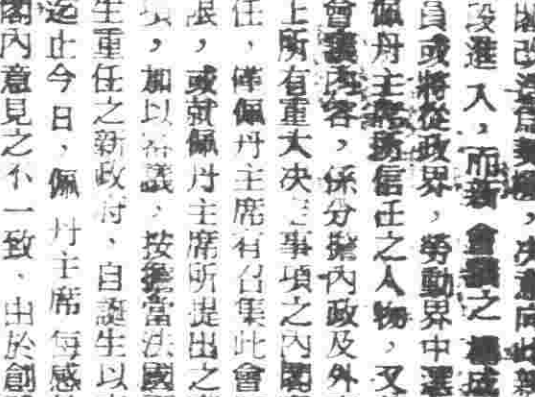 閣改造為契機，决意向此新
段進入，而新會議之構成
員或將從政界，勞動界中選
佩丹主席所信任之人物，又
會議內容，係分擔內政及外
上所有重大决定事項之內閣
任，僅佩丹主席有召集此會
限，或就佩丹主席所提出之
項，加以審議，按擔當法國
生重任之新政府、自誕生以
迄止今日，佩丹主席每感
閣內意見之不一致、由於創